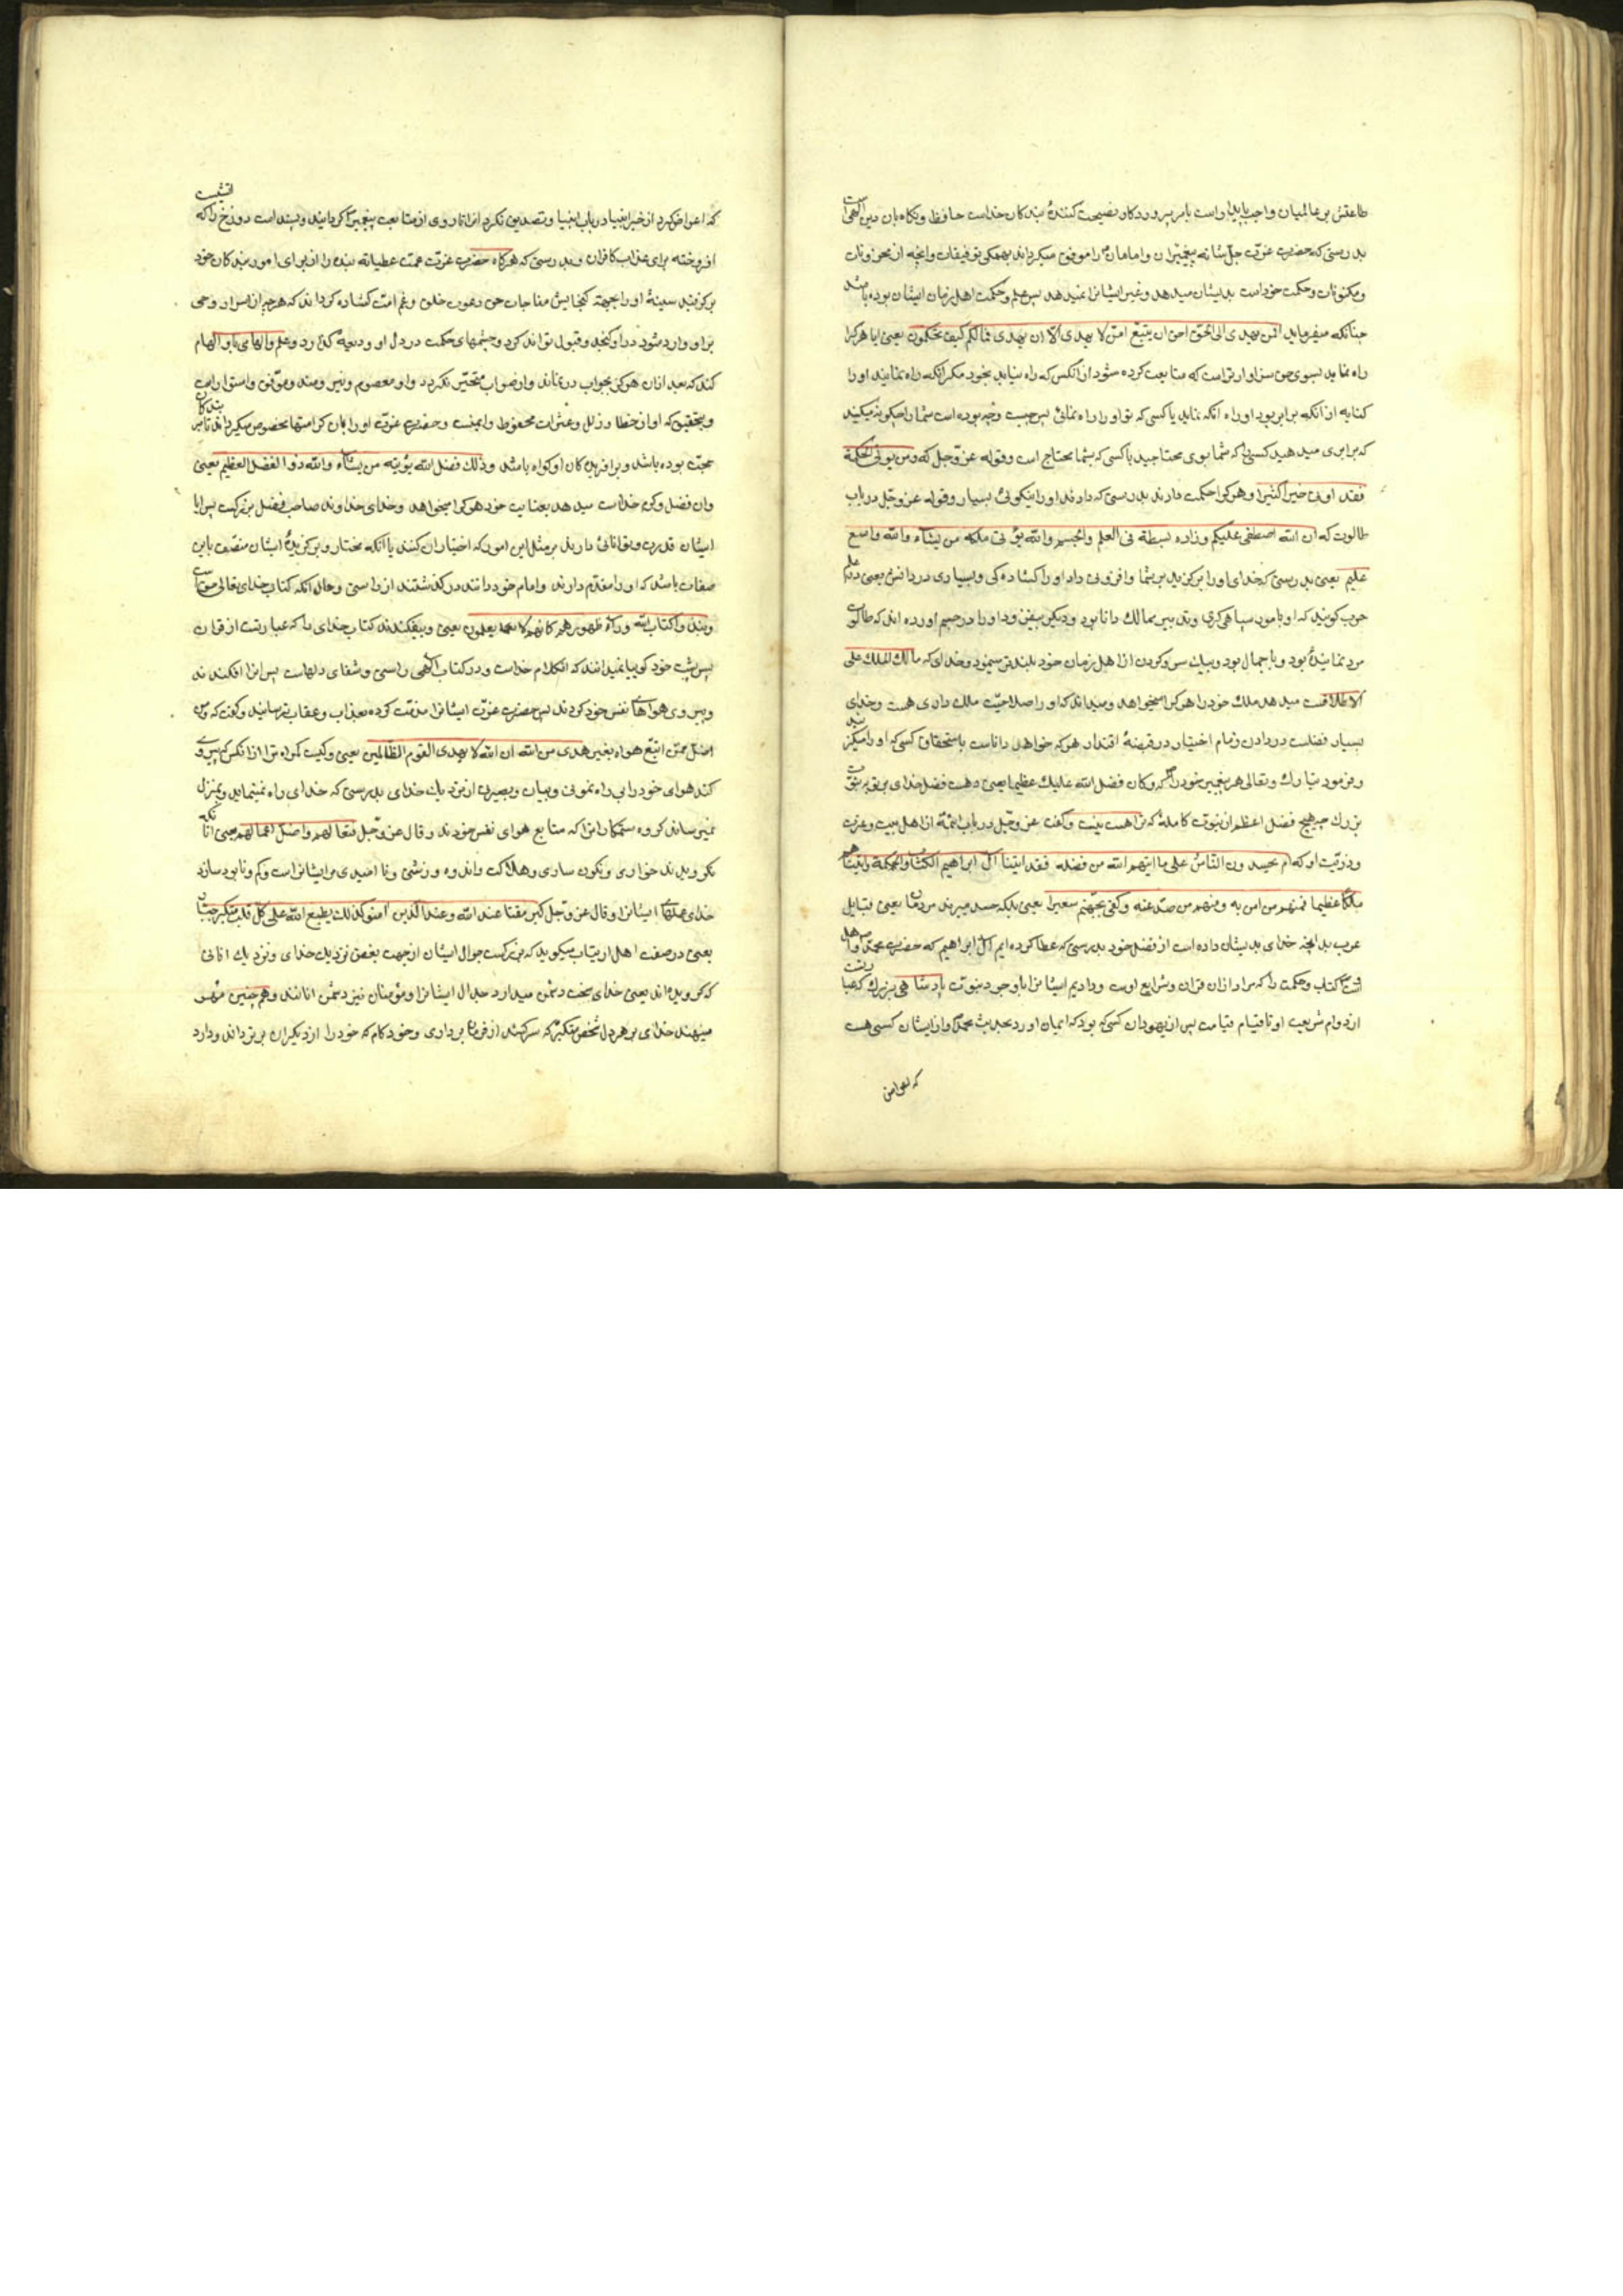 طاعتش بر عالمیان واجب پایدار است بامر پروردکار و نصیحت کنندهٔ بندکان خداست حافظ و نکاه بان دین الهی است
بدرستی که حضرت عزت جل شانه پیغمبران و امامان را موفق میکرداند بهمکی توفیقات و انچه از مخزونات
و مکنونات و حکمت خود است بدیشان میدهد و غیر ایشانرا نمیدهد پس علم و حکمت اهل زمان ایشان بوده باشد
چنانکه میفرماید افمن یهدی الی الحق احق ان یتبع امن لا یهدی الا ان یهدی فما لکم کیف تحکمون یعنی ایا هرکرا
راه نماید بسوی حق سزاوارتر است که متابعت کرده شود از انکس که راه نیابد بخود مکر انکه راه نمایند او را
کنایه از انکه برابر بود او را انکه نماید با کسی که تو او را راه نمائی پس چیست و چه بوده است شما را چکونه میکنید
که برابری میدهید کسی را که شما بوی محتاجید با کسی که بشما محتاج است و قوله عز و جل که و من یوتی الحکمة
فقد اوتی خیرا کثیرا و هرکرا حکمت دارند بدرستی که دادند او را نیکوئی بسیار و قوله عز و جل در باب
طالوت که ان الله اصطفی علیکم و زاده بسطة فی العلم والجسم والله یؤتی ملکه من یشآء والله واسع
علیم یعنی بدرستی که خدای او را برکزید بر شما و افزونی داد او را کشاده کی و بسیاری در دانش یعنی در علم
حرب کویند که او بامور سپاهی کری و تدبیر ممالک دانا بود و دیکر بیفزود او را در جسم اورده اند که طالوت
مرد نمایندهٔ بود و باجمال بود و بیک سر و کردن از اهل زمان خود بلندتر مینمود و خدای که مالک الملک علی
الاطلاقست میدهد ملک خود را هرکرا میخواهد و میداند که او را صلاحیت ملک داری هست و خدای
بسیار فضلست در دادن زمام اختیار در قبضهٔ اقتدار هرکه خواهد داناست باستحقاق کسی که او را میکزیند
و فرمود تبارک و تعالی مر پیغمبر خود را که و کان فضل الله علیک عظیما یعنی و هست فضل خدای بر تو
بزرک چه هیچ فضل اعظم از نبوت کامله که تراهست نیست و کفت عز و جل در باب ائمه از اهل بیت و عترت
و ذریّت او که ام یحسدون الناس علی ما اتیهم الله من فضله فقد اتینا آل ابراهیم الکتاب والحکمة واتیناهم
ملکا عظیما فمنهم من امن به و منهم من صد عنه و کفی بجهنم سعیرا یعنی بلکه حسد میبرند مردمان یعنی قبایل
عرب بدانچه خدای بدیشان داده است از فضل خود بدرستی که عطا کرده ایم آل ابراهیم که حضرت محمد و اهل
کتاب و حکمت را که مراد از ان قران و شرایع اوست و دادیم ایشانرا باوجود نبوت پادشاهی بزرک که عبارتست
از دوام شریعت او تا قیام قیامت پس از یهودان کسی که بود که ایمان اورد بحدیث محمد و از ایشان کسی هست
که
که اعراض کرد از خبر انبیا در باب انبیا و تصدیق نکرد از متابعت پیغمبر کردانید و بسند است دوزخ را که
افروخته برای عذاب کافران و بدرستی که هرکاه حضرت عزت عمت عطیاته بنده را از برای امور بندکان خود
برکزیند سینهٔ او را بجهة کنجایش مناجات حق و دعوت خلق و غم امت کشاده کرداند که هرچه از اسرار وحی
بر او وارد شود در او کنجد و قبول تواند کرد و چشمهای حکمت در دل او ودیعه کذارد و علم و الهام باو الهام
کند که بعد از ان هرکز بجواب در نماند و از صواب متحیر نکردد و او معصوم و موفق و استوار است
و بتحقیق که او از خطا و زلل و عثرات محفوظ و ایمنست و حضرت عزت او را بدان کرامتها مخصوص میکرداند تا بر بندکان
حجت بوده باشد و بر افریدکان او کواه باشد و ذلک فضل الله یؤتیه من یشاء والله ذو الفضل العظیم یعنی
و ان فضل و کرم خداست میدهد بعنایت خود هرکرا میخواهد و خدای خداوند صاحب فضل بزرکست پس ایا
ایشان قدرت و توانائی دارند بر مثل این امور که اختیار ان کنند یا انکه مختار و برکزیدهٔ ایشان متصف باین
صفات باشد که او را مقدم دارند و امام خود دانند درکذشتند از راستی و حال انکه کتاب خدای تعالی
و نبذوا کتاب الله ورآء ظهورهم کانهم لا یعلمون یعنی و بیفکندند کتاب خدای را که عبارتست از قران
پس پشت خود کوییا نمیدانند که انکلام خداست و در کتاب الهی راستی و شفای دلهاست پس انرا افکندند
و پیروی هواهای نفس خود کردند پس حضرت عزت ایشانرا مذمت کرده بعذاب و عقاب ترسانید و کفت که و من
اضل ممن اتبع هواه بغیر هدی من الله ان الله لا یهدی القوم الظالمین یعنی و کیست کمراه تر از انکس که پیروی
کند هوای خود را بی راه نمونی و بیان و بصیرتی از نزدیک خدای بدرستی که خدای راه نمینماید و بمنزل
نمیرساند کروه ستمکارانرا که متابع هوای نفس خودند و قال عز و جل فتعسا لهم واضل اعمالهم یعنی انانکه
نکرویدند خواری و نکون ساری و هلاکت و اندوه و زشتی و نا امیدی مر ایشانراست و کم و نابود سازد
خدای عملهای ایشانرا و قال عز و جل کبر مقتا عند الله و عند الذین آمنو کذلک یطبع الله علی کل قلب متکبر جبار
یعنی در صفت اهل ارتیاب میکوید که بزرکست جدال ایشان از جهت بغض نزدیک خدای و نزدیک انانی
که کرویده اند یعنی خدای سخت دشمن میدارد جدال ایشانرا و مؤمنان نیز دشمن انانند و هم چنین مهر
مینهند خدای بر هر دل شخص متکبر که سرکشند از فرمان برداری و خودکام که خود را از دیکران برتر داند و دارد